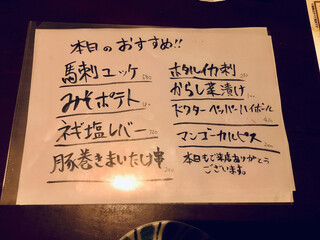 本日のおすすめ!!
馬刺ユッケ
みそポテト
ネギ塩レバー
豚巻きまいたけ串
ホタルイカ刺
からし菜漬け
ドクターペッパーハイボール
マンゴーカルピス
本日もご来店ありがとう
ございます。